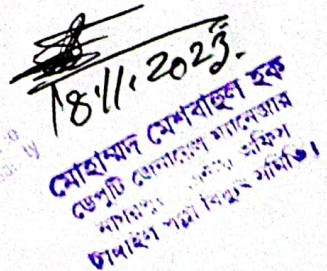 18.11.2023.
মোহাম্মদ মেশবাহুল হক
ডেপুটি জেনারেল ম্যানেজার
অফিস
পল্লী বিদ্যুৎ সমিতি।